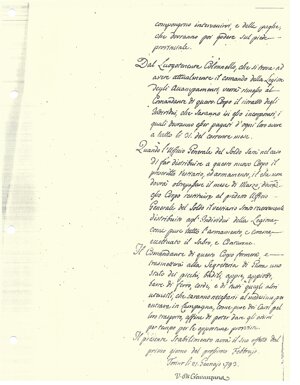 componenti interverrà, e delle paghe,
che dovranno per godere sul piede
provinciale.
Dal Luogotenente Colonnello, che si trova ad
avere attualmente il comando della Legione
degli Accampamenti, verrà rimesso al
Comandante di questo Corpo il
Individui, che saranno in esso incorporati, i
quali dovranno esser pagati d'ogni loro avere
a tutto li 31. del corrente mese.
Quando l'Uffizio Generale del Soldo sarà nel caso
di far distribuire a questo nuovo Corpo il
vestiario, ed armamento, il che non
dovrà oltrepassare il mese di Marzo, dovrà
esso Corpo restituire al predetto Uffizio
Generale del Soldo il vestiario
distribuito agl'Individui della Legione,
come pure tutto l'armamento, e
eccettuato il Sabro, e
Il Comandante di questo Corpo formerà, e
trasmetterà alla Segreteria di Guerra uno
stato dei picchi, badili, zappe,
barre di ferro, corde, e di tutti quegli altri
utensili, che saranno
in Campagna, come pure dei
loro trasporto, affine di poter dare gli ordini
per tempo per le opportune provviste.
Il presente Stabilimento avrà il suo effetto dal
primo giorno del prossimo Febbrajo.
Torino li 21. Gennajo 1793.